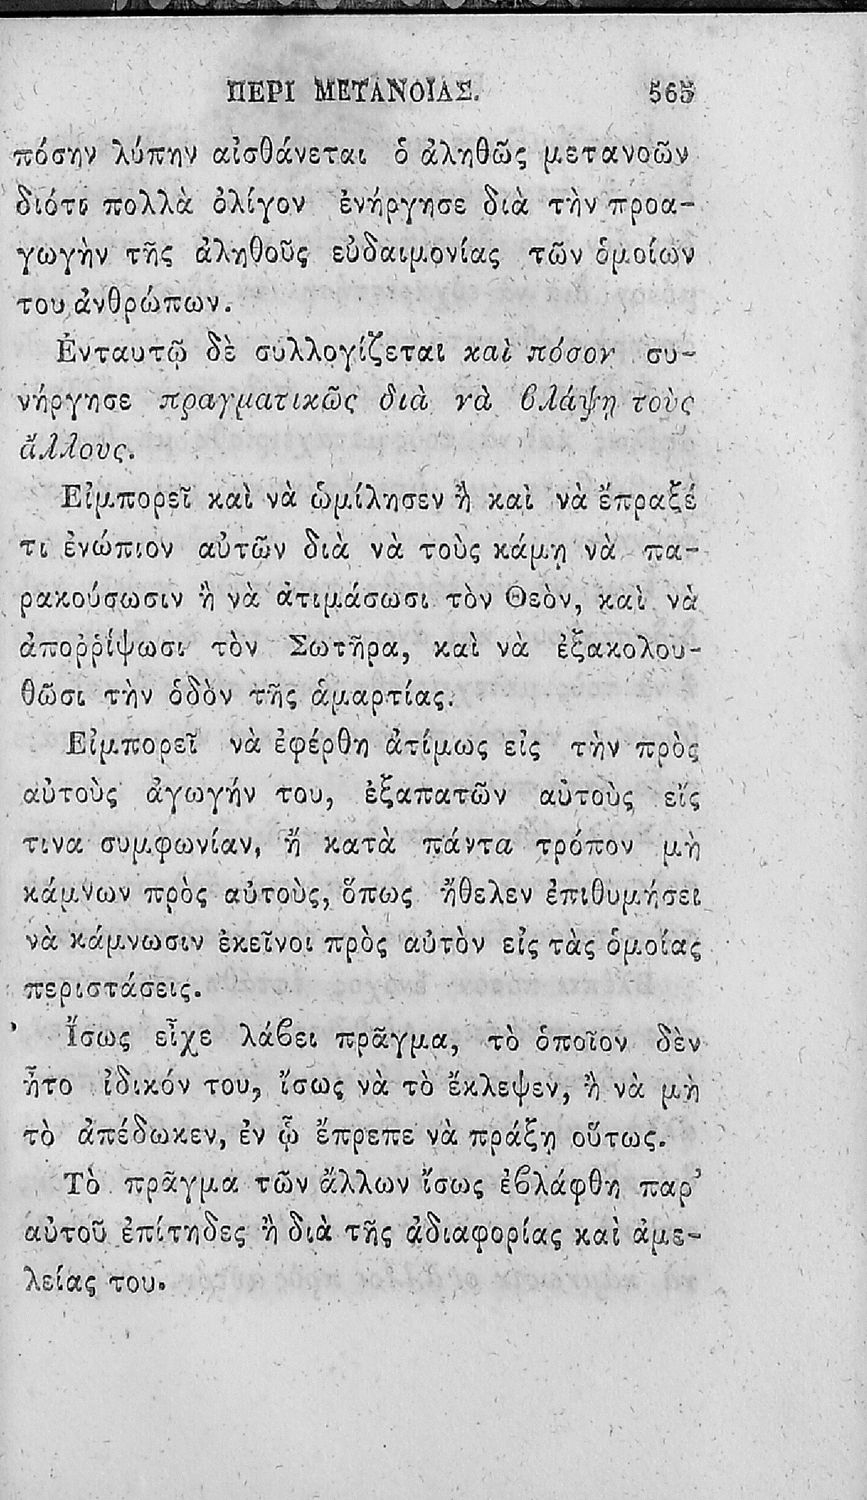 ΠΕΡΙ ΜΕΤΑΝΟΙΑΣ. 565
πόσην λύπην αἰσθάνεται ὁ ἀληθῶς μετανοῶν
διότι πολλὰ ὀλίγον ἐνήργησε διὰ τὴν προα-
γωγὴν τῆς ἀληθοῦς εὐδαιμονίας τῶν ὁμοίων
του ἀνθρώπων.
Ἐνταυτῷ δὲ συλλογίζεται καὶ πόσον συ-
νήργησε πραγματικῶς διὰ νὰ βλάψῃ τοὺς
ἄλλους.
Εἰμπορεῖ καὶ νὰ ὡμίλησεν ἢ καὶ νὰ ἔπραξέ
τι ἐνώπιον αὐτῶν διὰ νὰ τοὺς κάμῃ νὰ πα-
ρακούσωσιν ἢ νὰ ἀτιμάσωσι τὸν Θεὸν, καὶ νὰ
ἀποῤῥίψωσι τὸν Σωτῆρα, καὶ νὰ ἐξακολου-
θῶσι τὴν ὁδὸν τῆς ἁμαρτίας.
Εἰμπορεῖ νὰ ἐφέρθη ἀτίμως εἰς τὴν πρὸς
αὐτοὺς ἀγωγήν του, ἐξαπατῶν αὐτοὺς εἴς
τινα συμφωνίαν, ἢ κατὰ πάντα τρόπον μὴ
κάμνων πρὸς αὐτοὺς, ὅπως ἤθελεν ἐπιθυμήσει
νὰ κάμνωσιν ἐκεῖνοι πρὸς αὐτὸν εἰς τὰς ὁμοίας
περιστάσεις.
Ἴσως εἶχε λάβει πρᾶγμα, τὸ ὁποῖον δὲν
ἦτο ἰδικόν του, ἴσως νὰ τὸ ἔκλεψεν, ἢ νὰ μὴ
τὸ ἀπέδωκεν, ἐν ᾧ ἔπρεπε νὰ πράξῃ οὕτως.
Τὸ πρᾶγμα τῶν ἄλλων ἴσως ἐβλάφθη παρ’
αὐτοῦ ἐπίτηδες ἢ διὰ τῆς ἀδιαφορίας καὶ ἀμε-
λείας του.